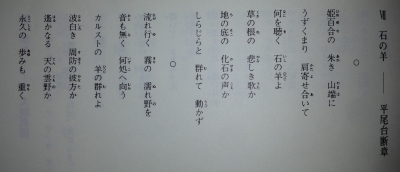 Ⅶ 石の羊 ――平尾台断章
○
姫百合の 朱き 山端に
うずくまり 肩寄せ合いて
何を聴く 石の羊よ
草の根の 悲しき歌か
地の底の 化石の声か
しらじらと 群れて 動かず
○
流れ行く 霧の 濡れ野を
音も無く 何処へ向う
カルストの 羊の群れよ
波白き 周防の彼方か
遥かなる 天の雲野か
永久の 歩みも 重く